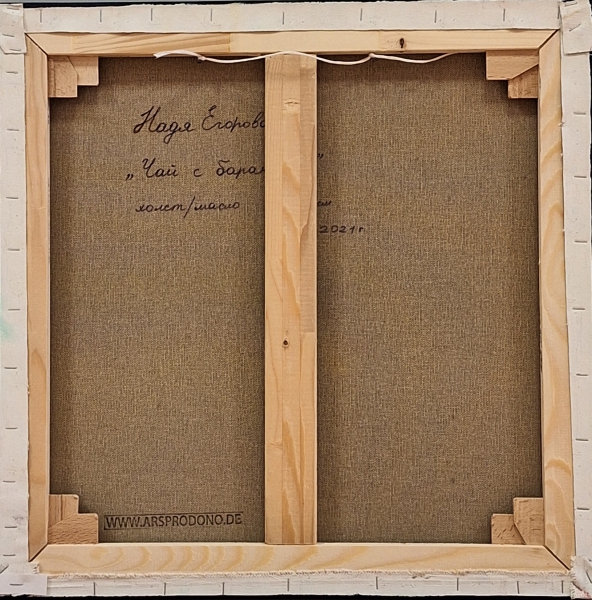 Надя Егорова
„Чай с баран "
холст/масло см
2021 г
WWW.ARSPRODONO.DE